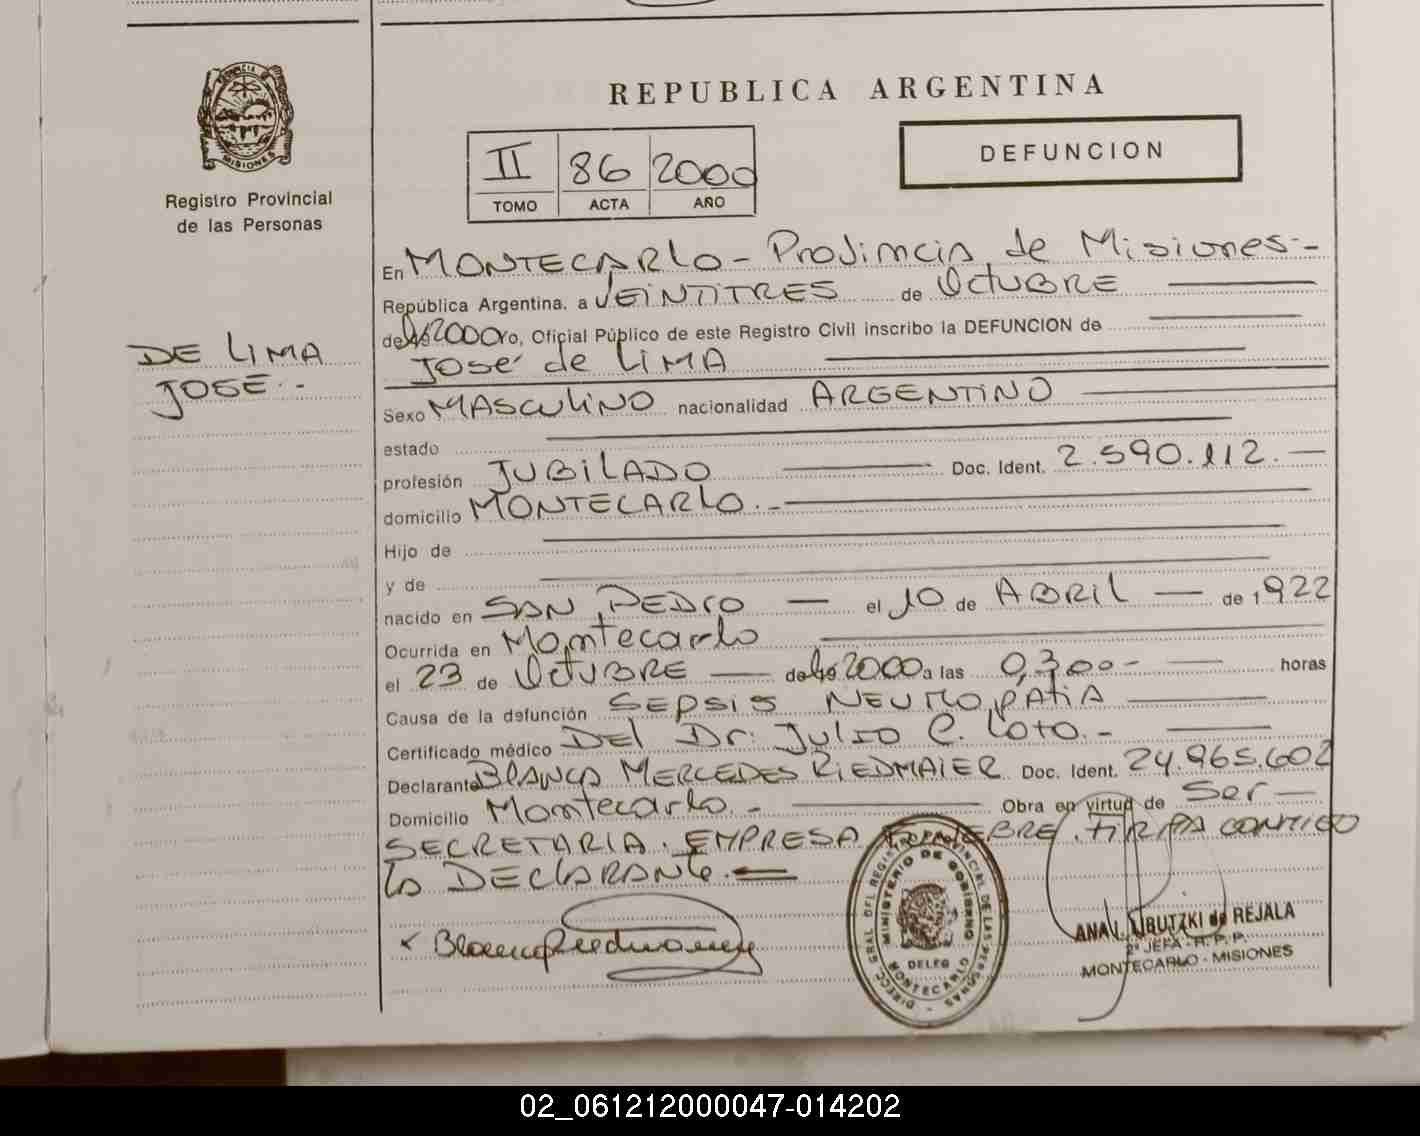 REPUBLICA ARGENTINA
PROVINCIA
MISIONES
Registro Provincial
de las Personas
II 86 2000
TOMO ACTA AÑO
DEFUNCION
DE LIMA
JOSE.-
En MONTECARLO - Provincia de Misiones.-
República Argentina. a VEINTITRES de OCTUBRE
de 2000 yo, Oficial Público de este Registro Civil inscribo la DEFUNCION de
José de LIMA
Sexo MASCULINO nacionalidad ARGENTINO
estado
profesión JUBILADO Doc. Ident. 2.590.112.-
domicilio MONTECARLO.-
Hijo de
y de
nacido en SAN PEDRO el 10 de ABRIL de 1922
Ocurrida en Montecarlo
el 23 de OCTUBRE de 2000 a las 0,300- horas
Causa de la defunción SEPSIS NEUROPATIA
Certificado médico DEL Dr. Julio C. Loto.-
Declarante BLANCA MERCEDES RIEDMAIER Doc. Ident. 24.965.602
Domicilio Montecarlo.- Obra en virtud de Ser
SECRETARIA. EMPRESA FUNEBRE. FIRMA CONMIGO
LA DECLARANTE.
DIRECC. GRAL. DEL REGISTRO PROVINCIAL DE LAS PERSONAS
MINISTERIO DE GOBIERNO
DELEG
MONTECARLO
ANA L. LIBUTZKI de REJALA
2ª JEFA - R. P. P.
MONTECARLO - MISIONES
02_061212000047-014202